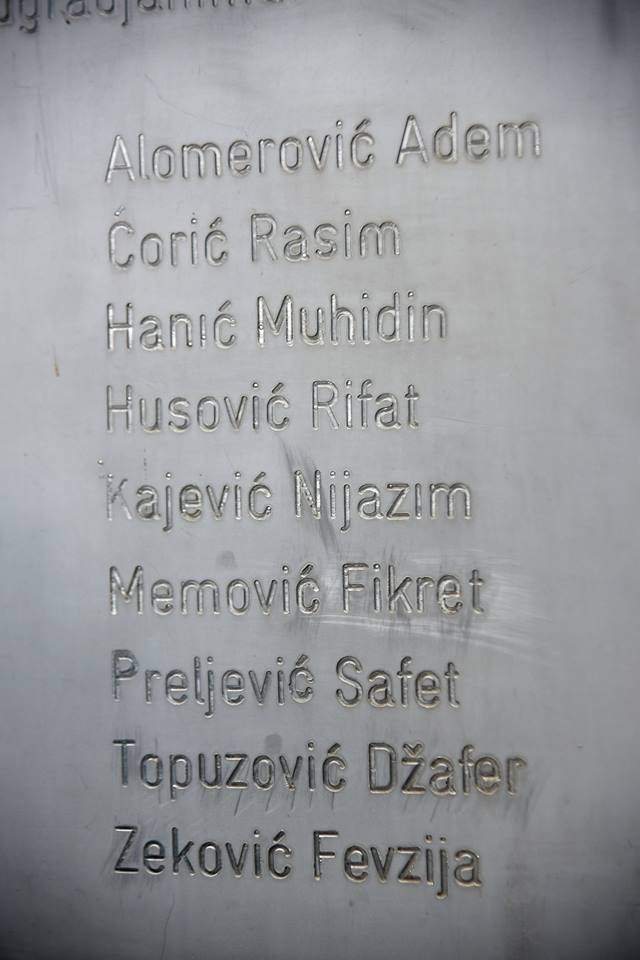 Alomerović Adem
Ćorić Rasim
Hanıć Muhidin
Husović Rifat
Kajević Nijazım
Memović Fikret
Preljević Safet
Topuzović Džafer
Zeković Fevzija